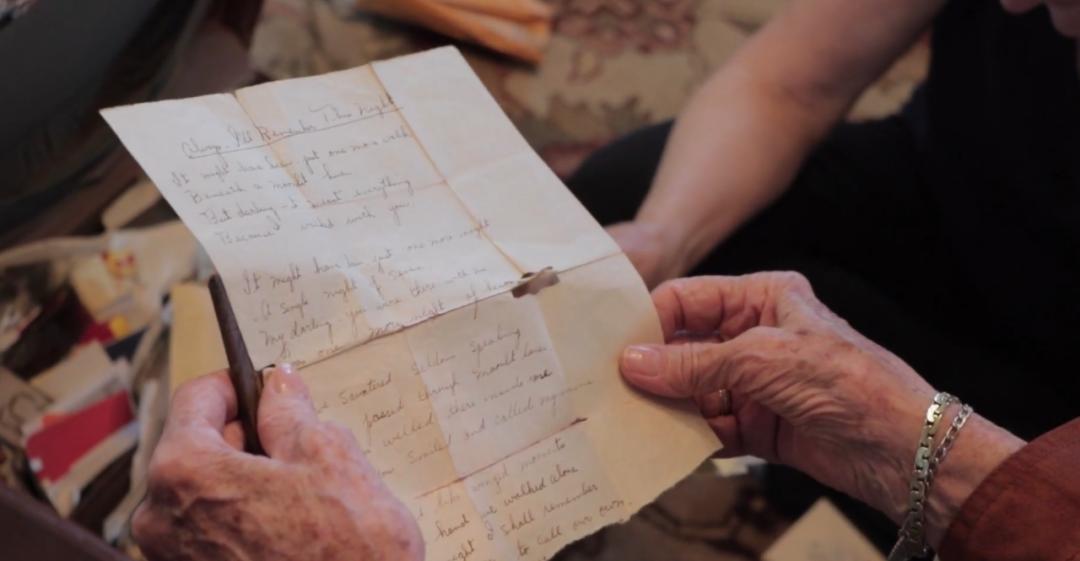 Always I'll Remember This Night
It might have been just one more walk
Beneath a moonlit
But darling - it meant everything
Because I walked with you.
It might have been just one more night
A single night of Seven
My darling you were there with me
one more night of heaven
Sauntered Seldom Speaking
passed through moonlit lane
walked there inside
Smiled and called my name
like winged moments
hand we walked alone
night I shall remember
to call our own.